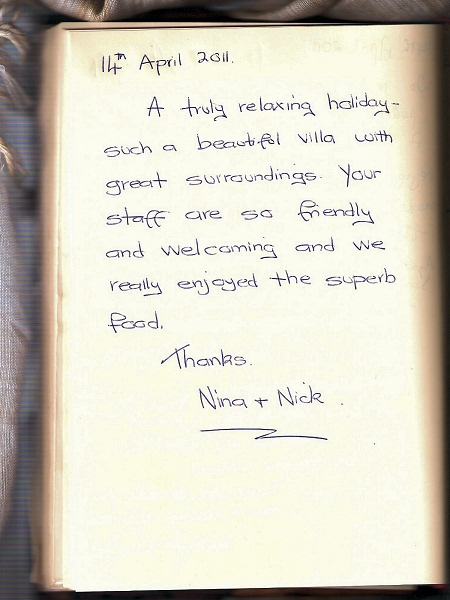 14th April 2011.
A truly relaxing holiday-
such a beautiful villa with
great surroundings. Your
staff are so friendly
and welcoming and we
really enjoyed the superb
food.
Thanks.
Nina + Nick.